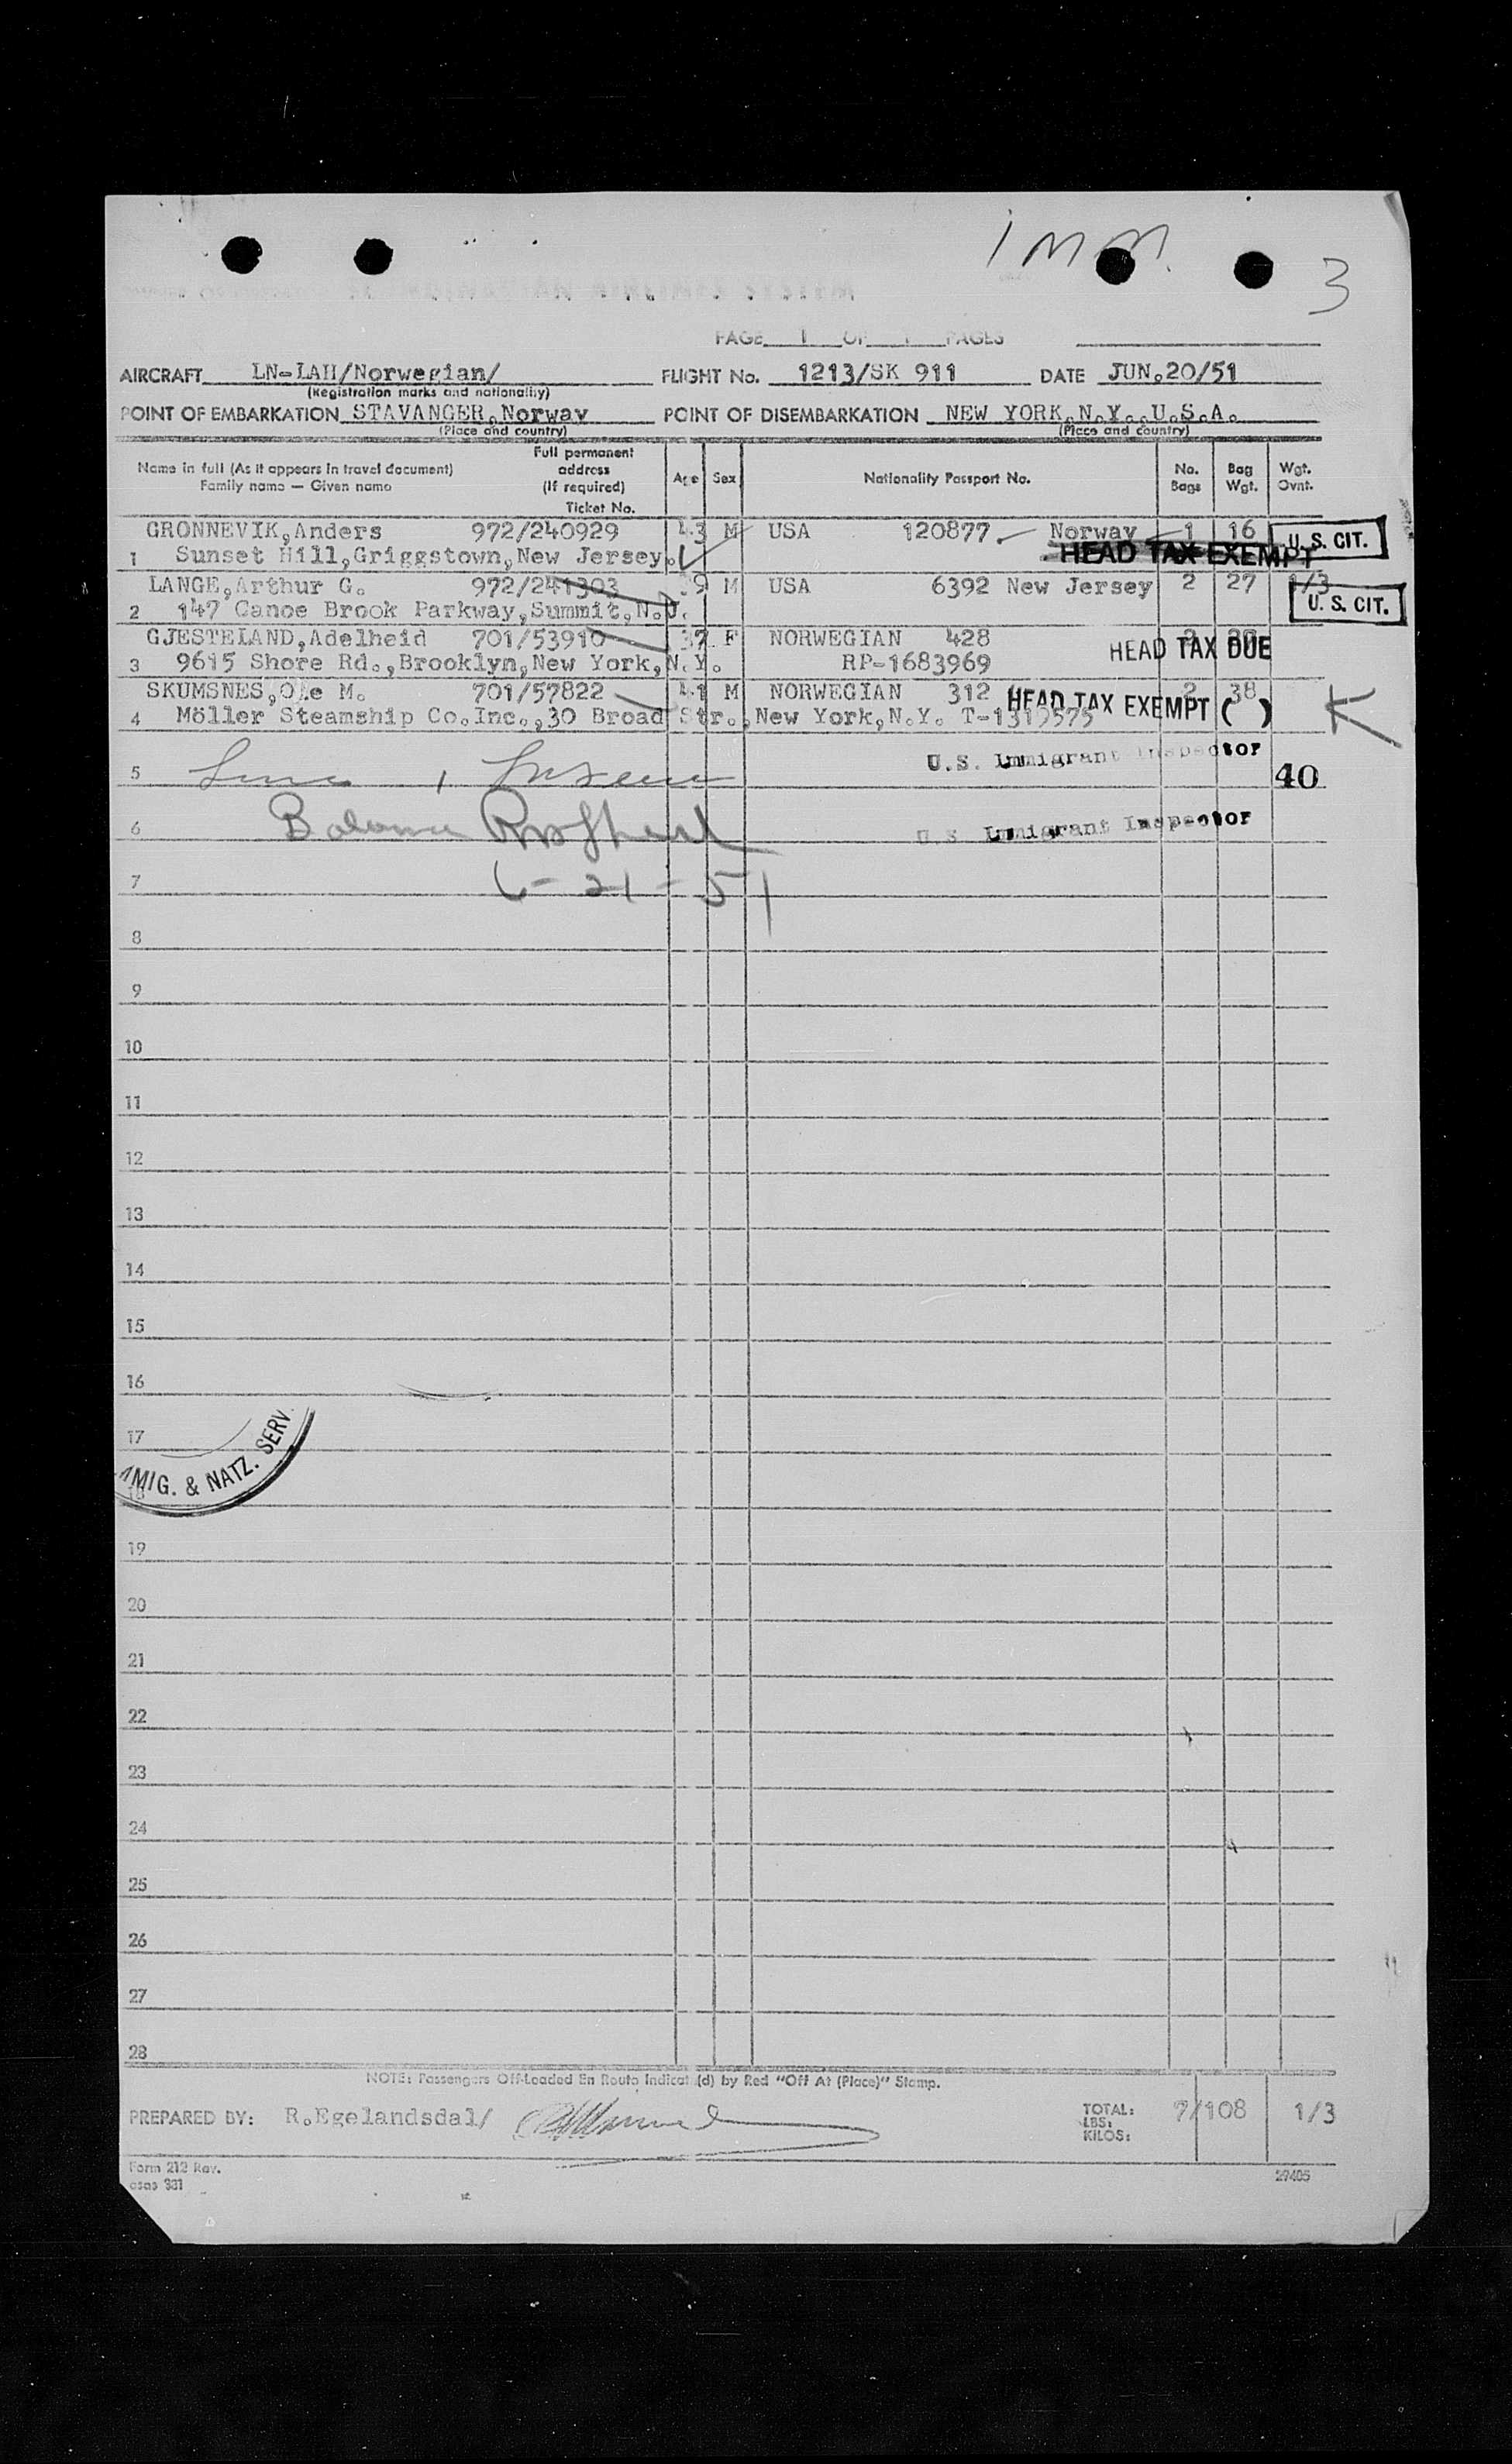 imm.
3
PAGE 1 OF 1 PAGES
AIRCRAFT LN-LAH/Norwegian/ FLIGHT No. 1213/SK 911 DATE JUN.20/51
(Registration marks and nationality)
POINT OF EMBARKATION STAVANGER,Norway POINT OF DISEMBARKATION NEW YORK,N.Y.,U.S.A.
(Place and country) (Place and country)
Name in full (As it appears in travel document) Family name — Given name Full permanent address (If required) Ticket No. Age Sex Nationality Passport No. No. Bags Bag Wgt. Wgt. Ovnt.
GRONNEVIK,Anders 972/240929 43 M USA 120877 Norway 1 16 U. S. CIT.
1 Sunset Hill,Griggstown,New Jersey. HEAD TAX EXEMPT
LANGE,Arthur G. 972/241303 39 M USA 6392 New Jersey 2 27 1/3
2 147 Canoe Brook Parkway,Summit,N.J. U. S. CIT.
GJESTELAND,Adelheid 701/53910 37 F NORWEGIAN 428 2 HEAD TAX DUE
3 9615 Shore Rd.,Brooklyn,New York,N.Y. RP-1683969
SKUMSNES,Ole M. 701/57822 41 M NORWEGIAN 312 2 38 HEAD TAX EXEMPT ( ) K
4 Möller Steamship Co.Inc.,30 Broad Str.,New York,N.Y. T-1319575
U.S. Immigrant Inspector
5 40
6 Balance U.S. Immigrant Inspector
7 6-21-51
8
9
10
11
12
13
14
15
16
17
MIG. & NATZ. SERV.
18
19
20
21
22
23
24
25
26
27
28
NOTE: Passengers Off-Loaded En Route Indicat (d) by Red "Off At (Place)" Stamp.
PREPARED BY: R.Egelandsdal/ TOTAL: 7/108 1/3
LBS:
KILOS:
Form 212 Rev.
asas 331 29405